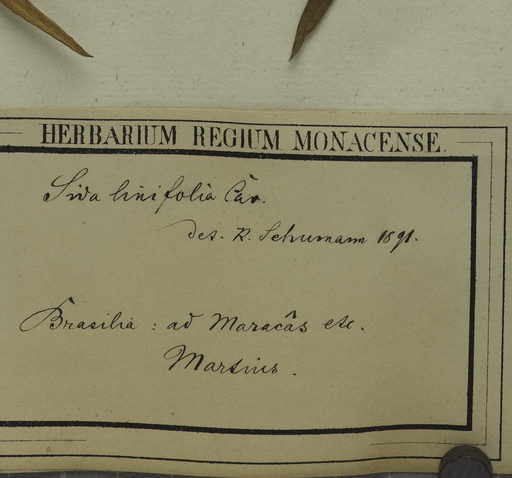 HERBARIUM REGIUM MONACENSE.
Sida linifolia Cav.
det. K. Schumann 1891.
Brasilia : ad Maracâs etc.
Martius.